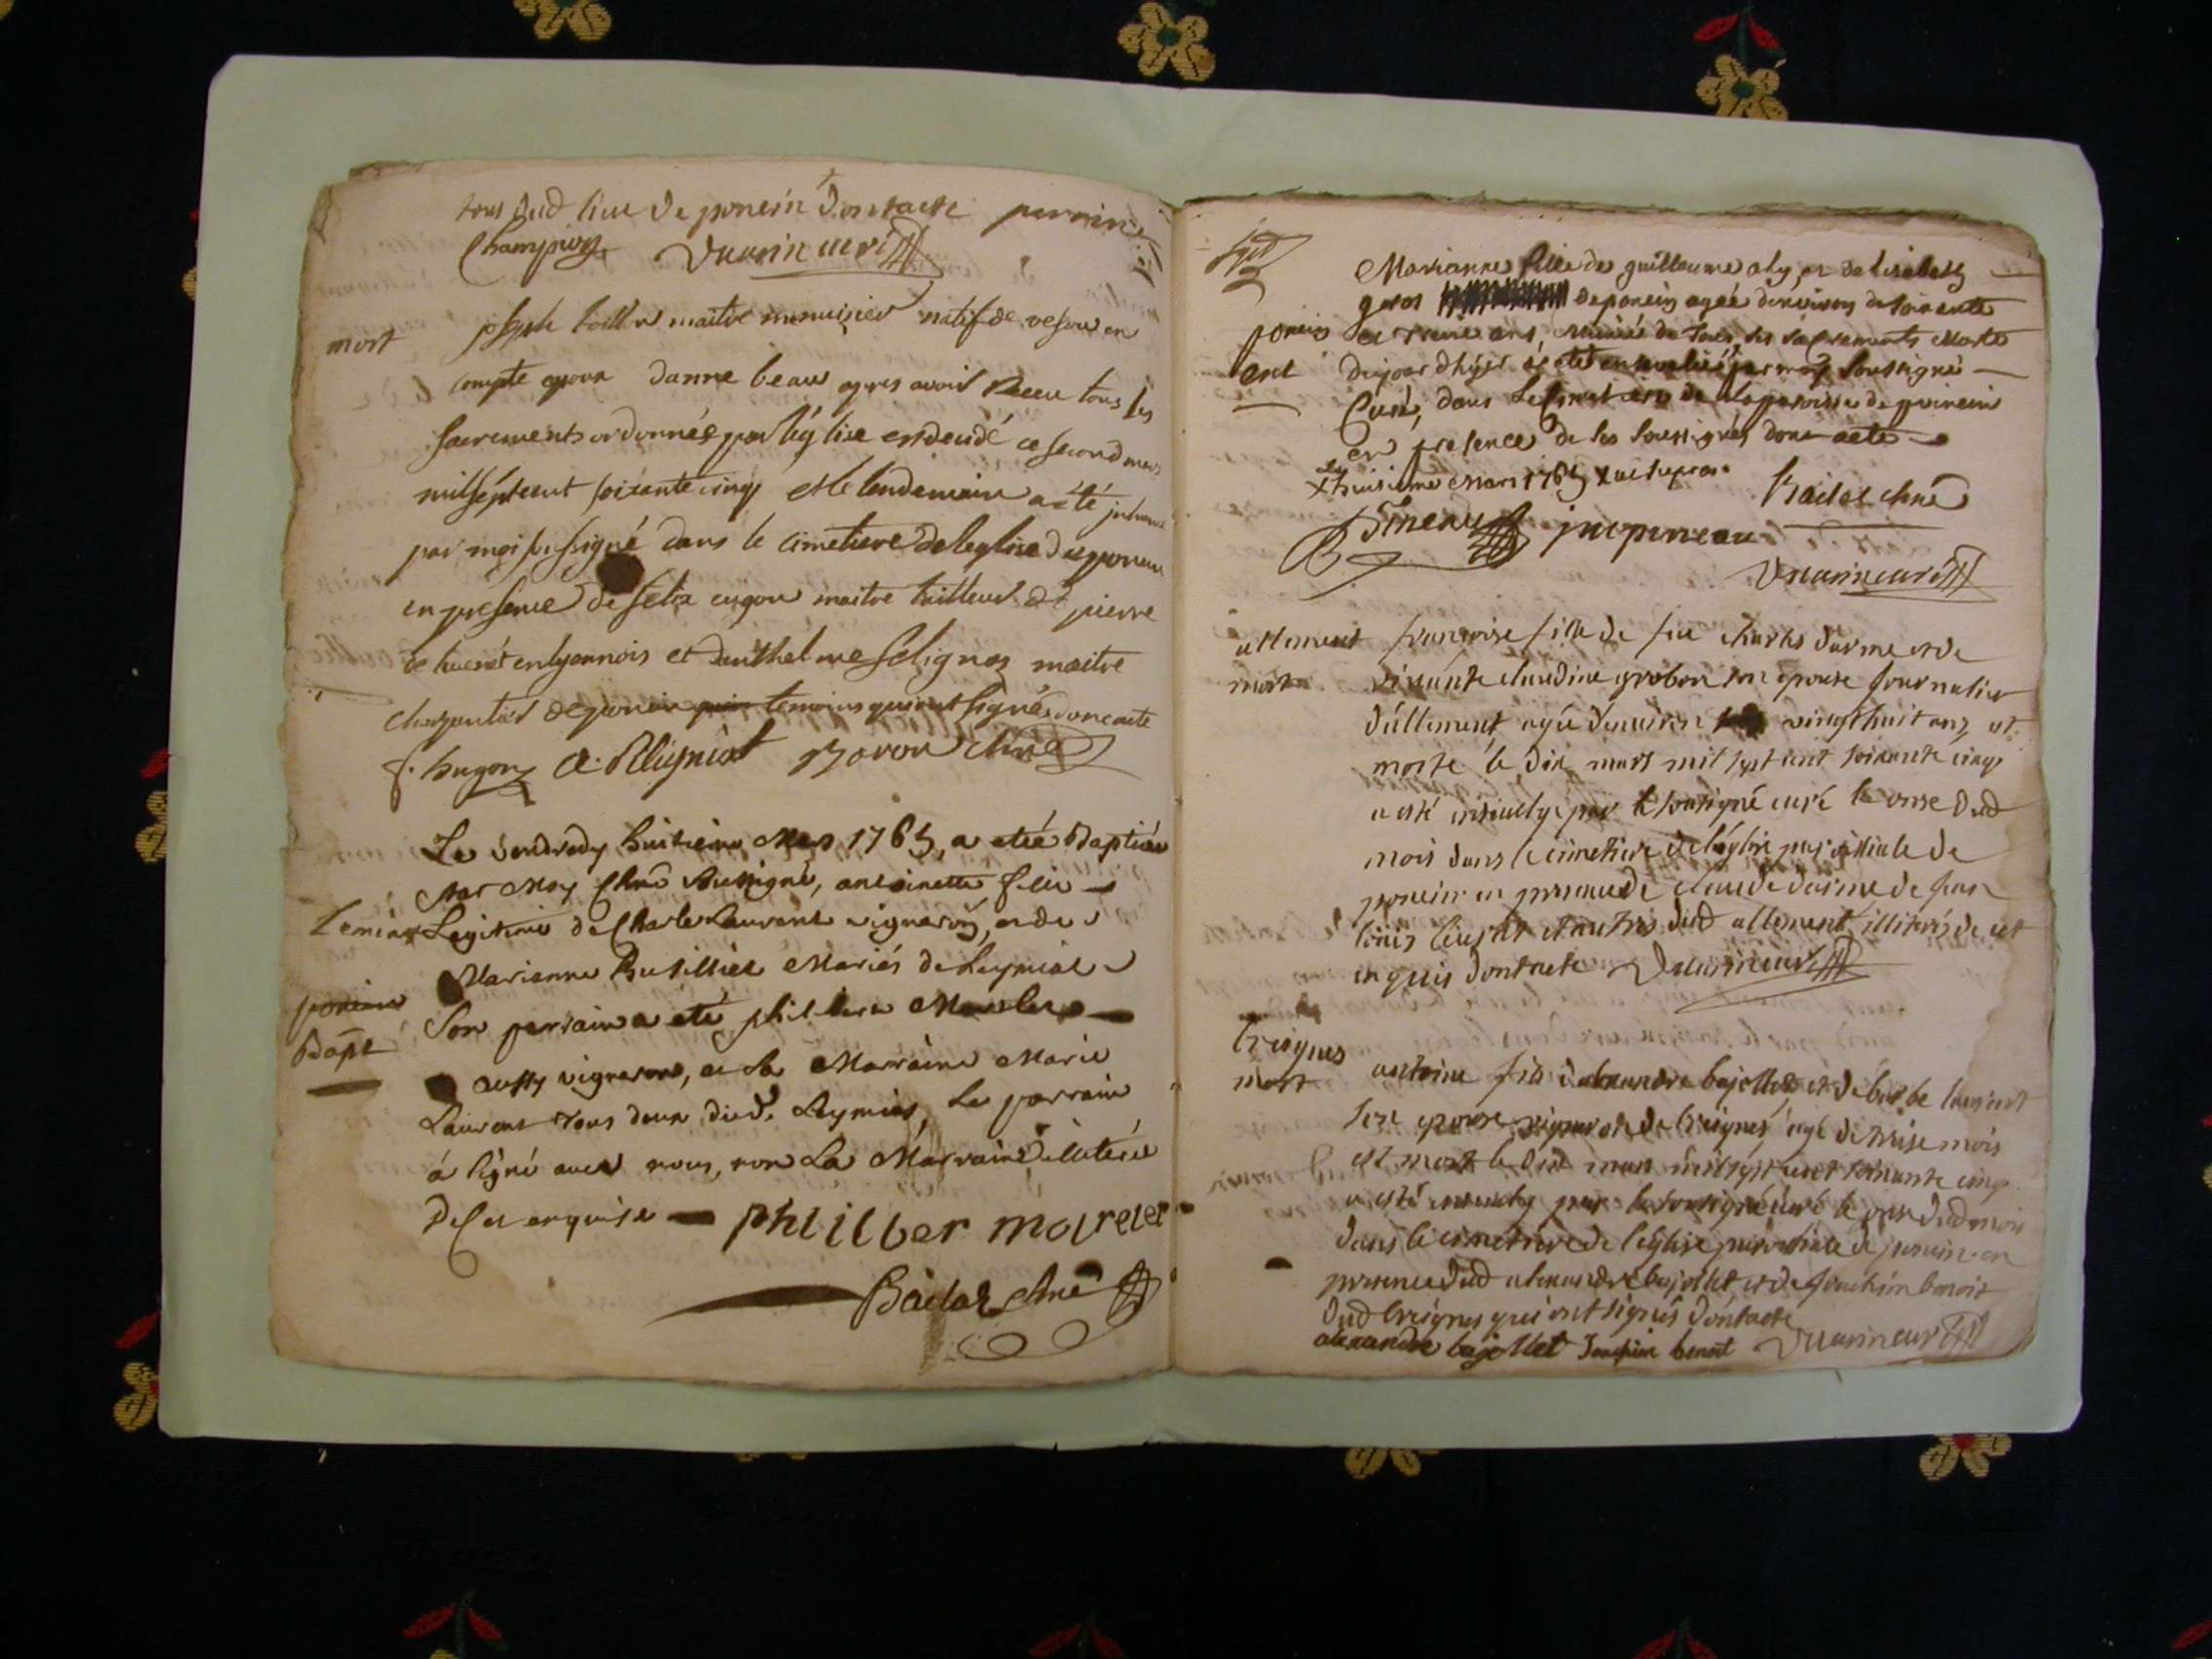 tous dud lieu de poncin dont acte perrin
Champion Vuarin curé
mort
joseph maitre menuisier natif de vesou en
compte epoux danne beau apres avoir receu tous les
sacrements ordonnées par léglise est decidé ce second mars
mil septcent soixante cinq et le lendemain a été inhumé
par moi sussigné dans le cimetiere de leglise de poncin
en presence de felix maitre tailleur et pierre
en lyonnois et danthelme maitre
charpentier de poncin temoins qui ont signés donc acte
f. hugon
Le Vendredy huitieme Mars 1765, a eteé Baptisée
par Moy soussigné, antoinette fille
Legitime de Charle Laurent vigneron, et de
Marianne Mariés de Leymiat
poncin
Bapt
Son parrain a été philibert
aussy vigneron, et sa Marraine Marie
Laurent tous deux dud. Leymiat, Le parrain
á signé avec nous, non La Marraine illiterée
De ce enquise philiber
Marianne fille de guillaume et
poncin
de poncin agée denviron soixante
et treize ans, munie de tous les sacrements Morte
ent
dujourdhuyer a eté ensevelie par moy soussigné
Curé, dans Le cimetiere de La paroisse de poncin
en presence de les soussignés donc acte
huitieme Mars 1765
Vuarin curé
allement
mort
francoise fille de feu charles darme et de
vivante claudine grobon son epouse journalier
d'allement agée denviron vingt huit ans, et
morte le dix mars mil sept cent soixante cinq
a esté ensevelye par le sousigné curé le onse dud
mois dans le cimetiere de léglise paroissiale de
poncin en presence de claude darme de jean
louis et autres dud allement illiterés de cet
enquis dont acte Vuarin curé
breignes
mort
antoine fils dalexandre bajollet et de barbe laurent
sere epouse vigneron de breignes agé de treise mois
est mort le dix mars mil sept cent soixante cinq
a esté ensevely par le sousigné curé le onse dud mois
dans le cimetiere de l'eglise paroissiale de poncin en
presence dud alexandre bajollet et de joachim benoit
dud breignes qui ont signés dont acte
alexandre bajollet Joachim benoit Vuarin curé